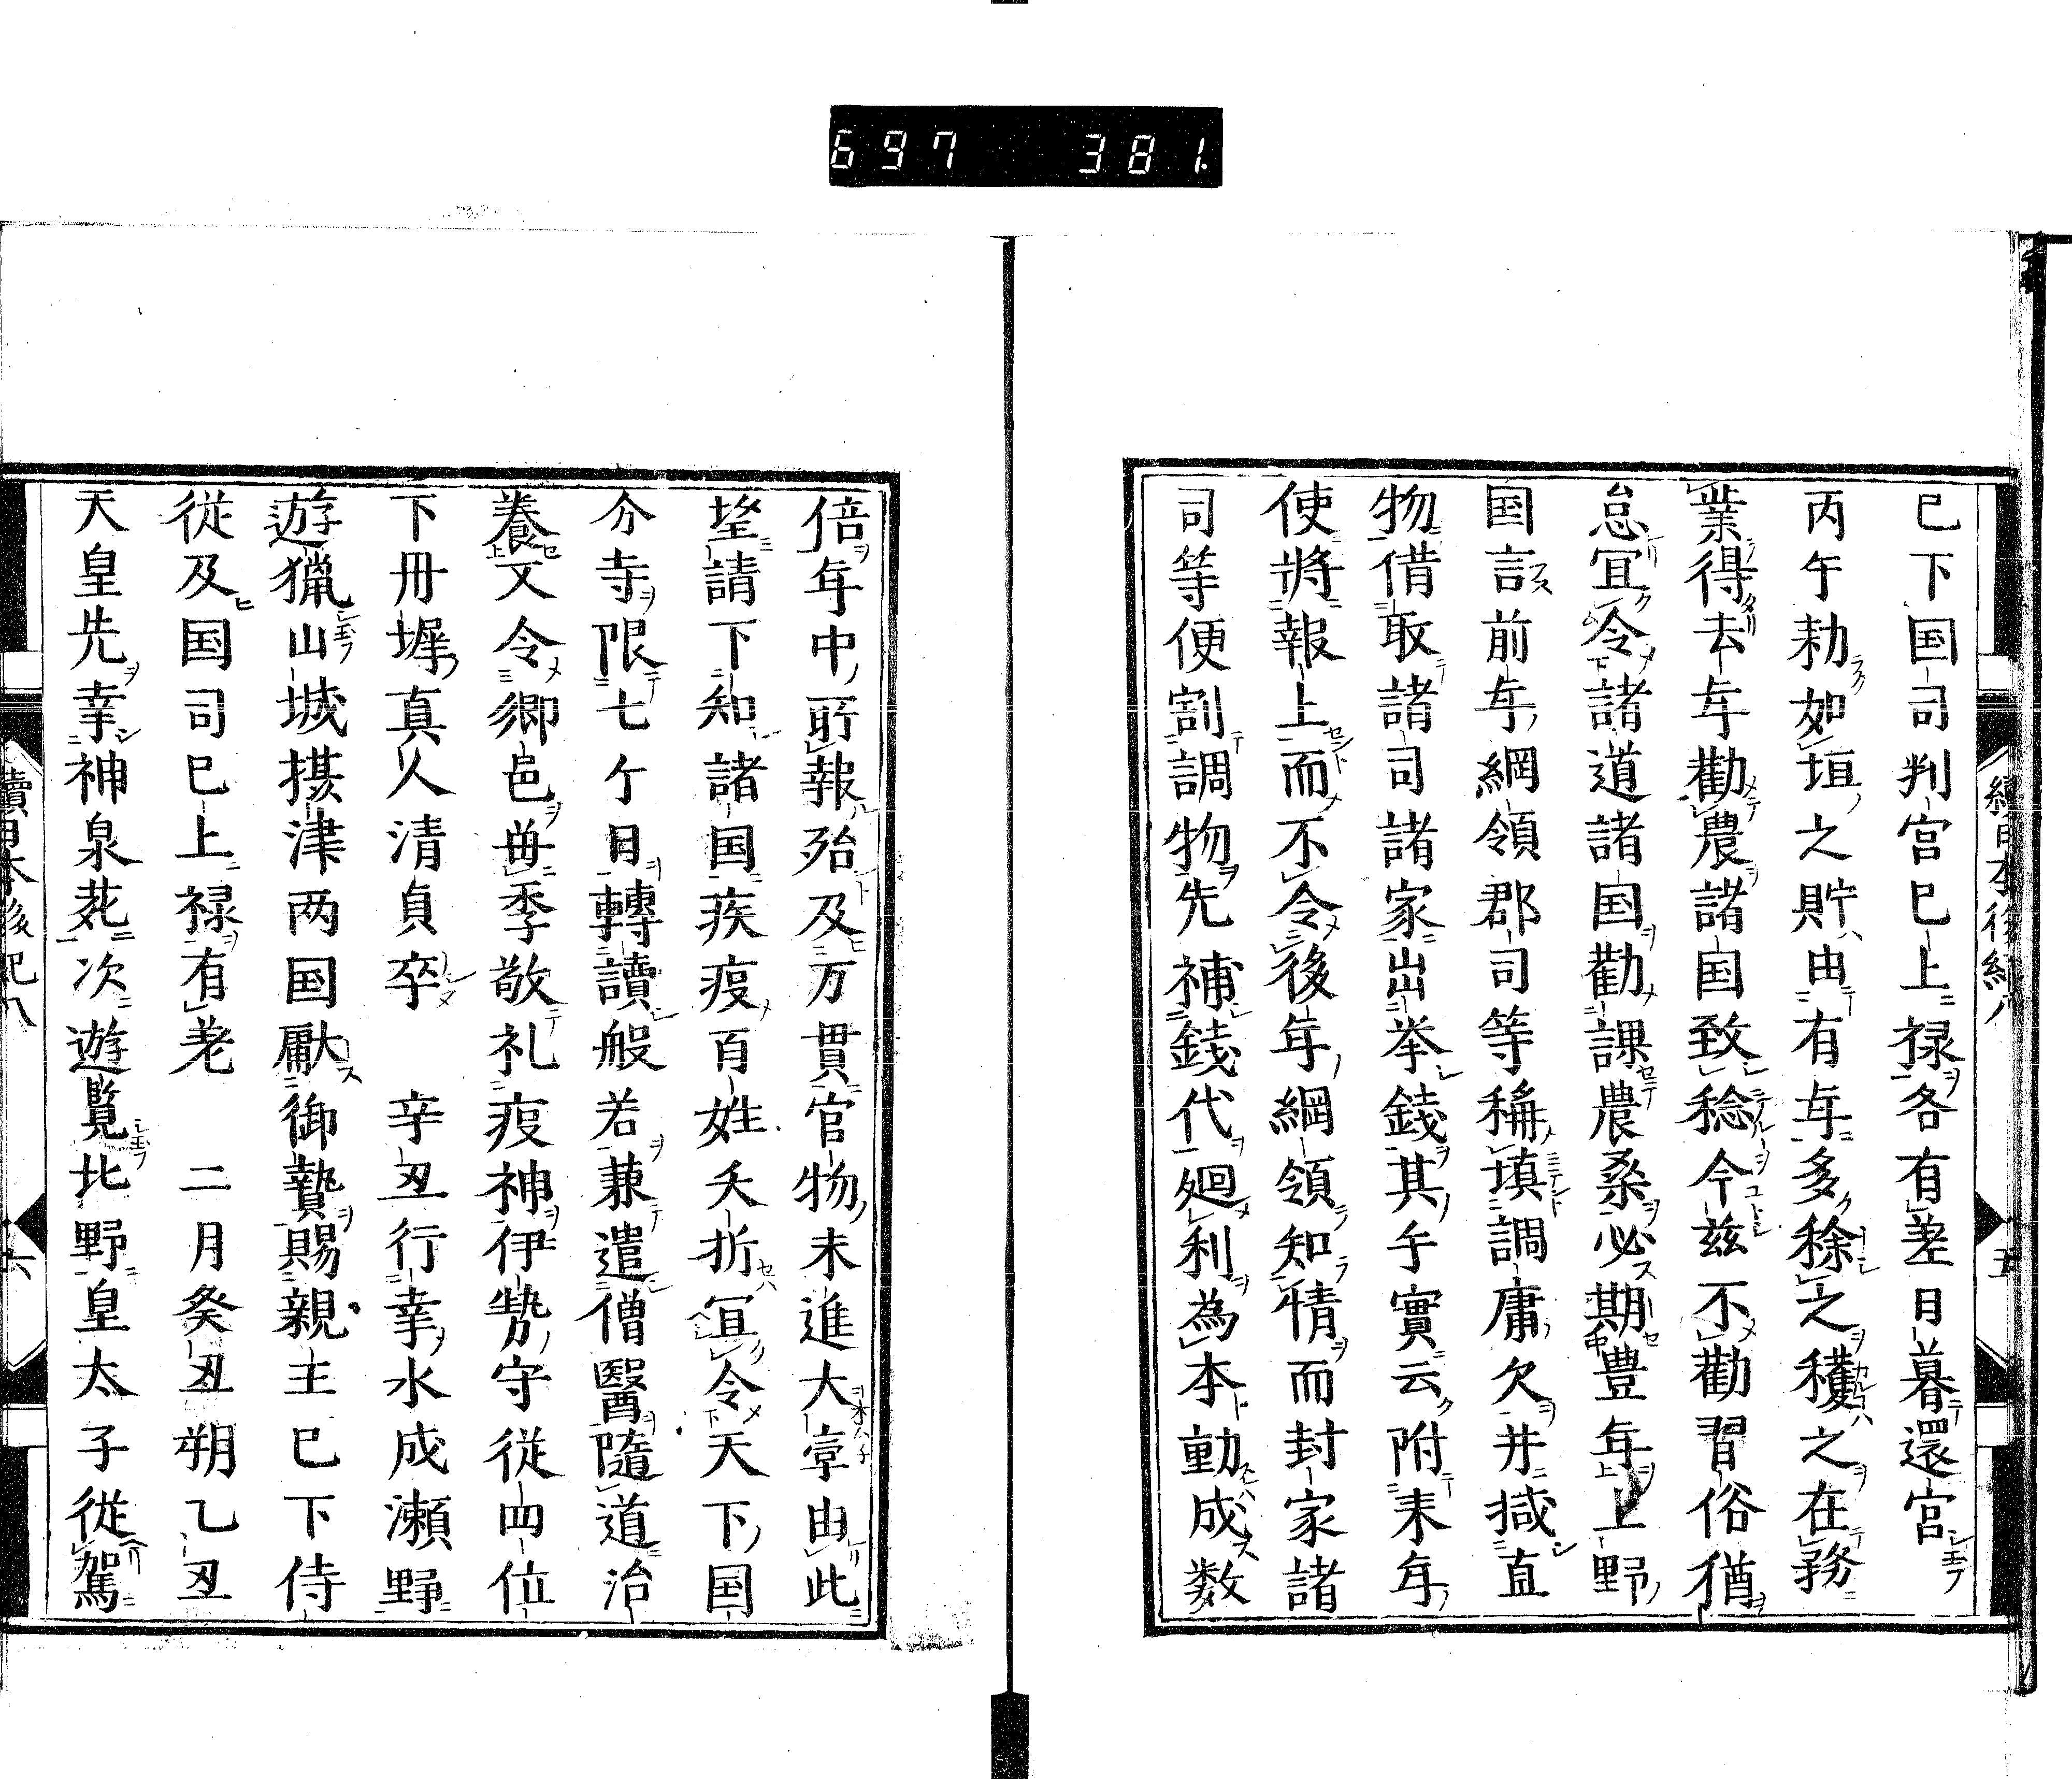 697 381.
續日本後紀八
五
巳下国司判官巳上禄各有差日暮還宮
丙午勅如坻之貯由有年多稌之穫之在務
業得去年勸農諸国致稔今茲不勸習俗猶
怠冝令諸道諸国勸課農桑必期豊年上野
国言前年綱領郡司等稱填調庸欠并撼直
物借取諸司諸家出挙錢其年實云附来年
使將報上而不令後年綱領知情而封家諸
司等便割調物先補錢代廻利為本動成数
倍年中所報殆及万貫官物未進大寧由此
望請下知諸国疾疫百姓夭折冝令天下国
分寺限七ケ日轉讀般若兼遣僧醫隨道治
養又令郷邑毎季敬礼疫神伊勢守従四位
下丹墀真人清貞卒 辛丑行幸水成瀬野
遊獵山城摂津两国獻御贄賜親主巳下侍
従及国司巳上禄有差 二月癸丑朔乙丑
天皇先幸神泉苑次遊覧北野皇太子従駕
續日本後紀八
六